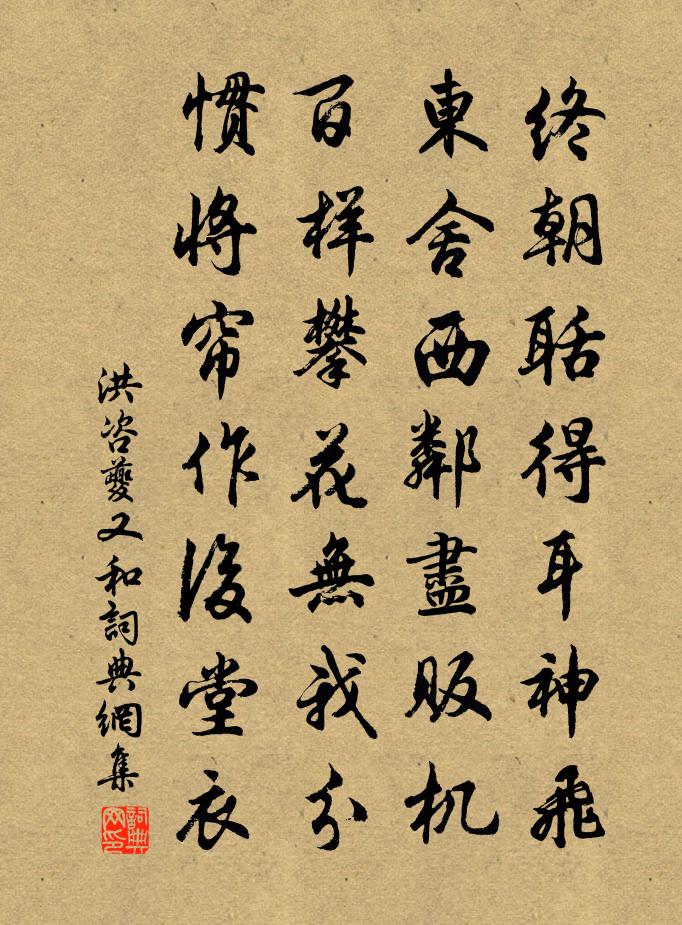 終朝聒得耳神飛
東舍西鄰盡販机
百樣攀花無我分
慣將帘作後堂衣
洪咨夔又和詞典網集
詞典网印